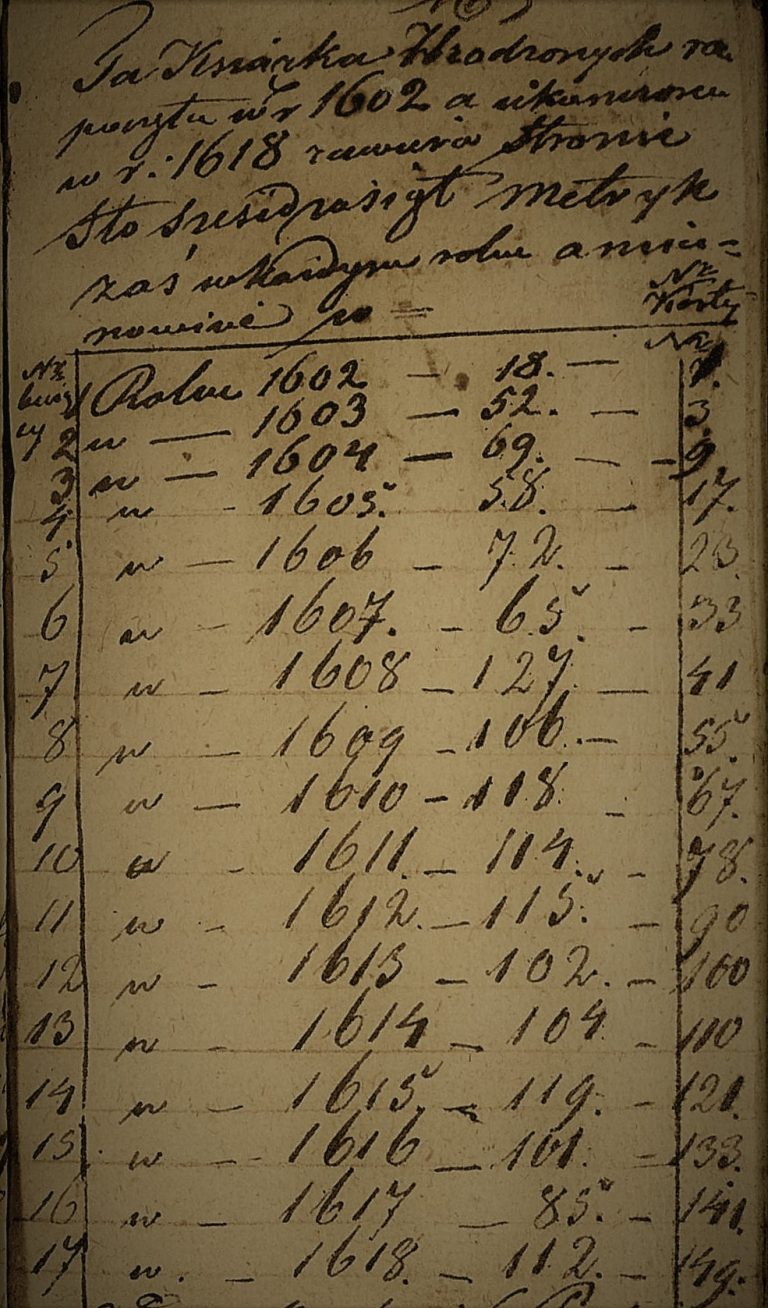 Ta Ksiąrka Urodzonych ro
poczęta w r 1602 a ukończona
w r. 1618 zawiera Stronic
Sto sześćdziesiąt metryk
zaś w każdym roku a mia=
nowicie w =
Nr Karty
Nr bieżący
Nr
1 Roku 1602 — 18. — 1.
2 w — 1603 — 52. — 3.
3 w — 1604 — 69. — 9
4. w - 1605. 58. — 17.
5 w — 1606 — 72. - 23.
6 w — 1607. - 65. - 33
7 w — 1608 — 127. — 41
8 w — 1609 - 106. — 55.
9 w — 1610 — 118. - 67.
10 w - 1611. — 114. - 78.
11 w - 1612. — 115. — 90
12 w - 1613 — 102. — 100
13 w - 1614 — 104 - 110
14 w — 1615. — 119. - 121.
15 w — 1616 — 101. = 133.
16 w — 1617 — 85. — 141.
17 w. — 1618. — 112. — 149.